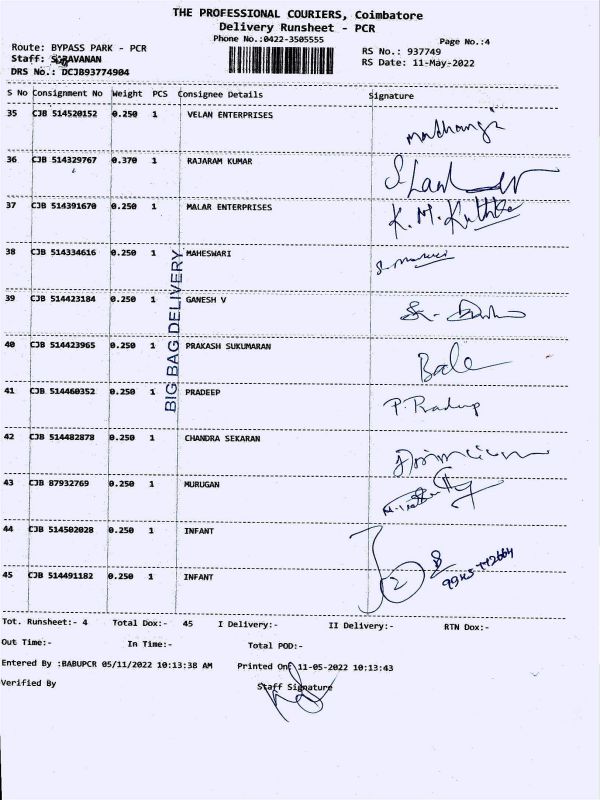 THE PROFESSIONAL COURIERS, Coimbatore
Delivery Runsheet - PCR
Phone No.:0422-3505555
Page No.:4
Route: BYPASS PARK - PCR
RS No.: 937749
Staff: SARAVANAN
RS Date: 11-May-2022
DRS No.: DCJB93774904
S No Consignment No Weight PCS Consignee Details Signature
35 CJB 514520152 0.250 1 VELAN ENTERPRISES
36 CJB 514329767 0.370 1 RAJARAM KUMAR
37 CJB 514391670 0.250 1 MALAR ENTERPRISES K. M.
38 CJB 514334616 0.250 1 MAHESWARI
39 CJB 514423184 0.250 1 GANESH V
40 CJB 514423965 0.250 1 PRAKASH SUKUMARAN
41 CJB 514460352 0.250 1 PRADEEP P. Pradeep
42 CJB 514482878 0.250 1 CHANDRA SEKARAN
43 CJB 87932769 0.250 1 MURUGAN
44 CJB 514502028 0.250 1 INFANT
45 CJB 514491182 0.250 1 INFANT 2
BIG BAG DELIVERY
Tot. Runsheet:- 4 Total Dox:- 45 I Delivery:- II Delivery:- RTN Dox:-
Out Time:- In Time:- Total POD:-
Entered By :BABUPCR 05/11/2022 10:13:38 AM Printed On: 11-05-2022 10:13:43
Verified By Staff Signature